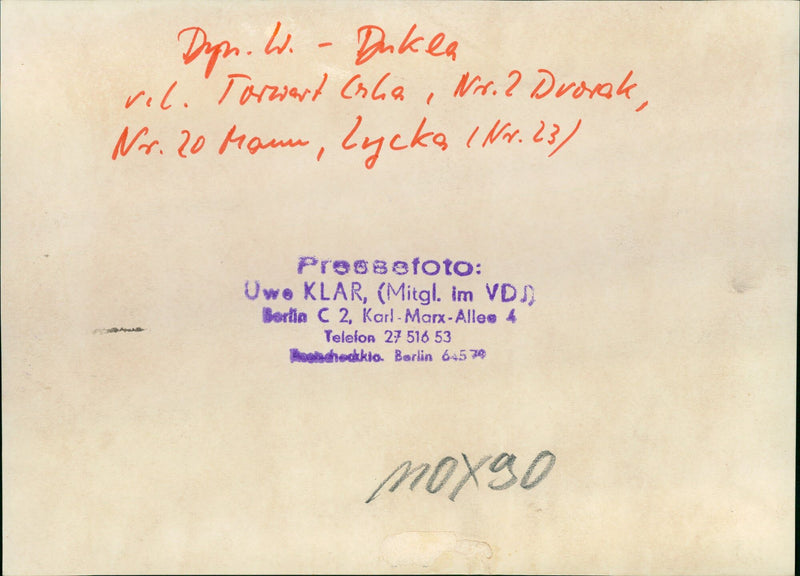 Dyn. W. - Dukla
v.l. Torwart Cuba, Nr. 2 Dvorak,
Nr. 20 Mann, Lycka (Nr. 23)
Pressefoto:
Uwe KLAR, (Mitgl. im VDJ)
Berlin C 2, Karl-Marx-Allee 4
Telefon 27 516 53
Postscheckkto. Berlin 645 79
110X90